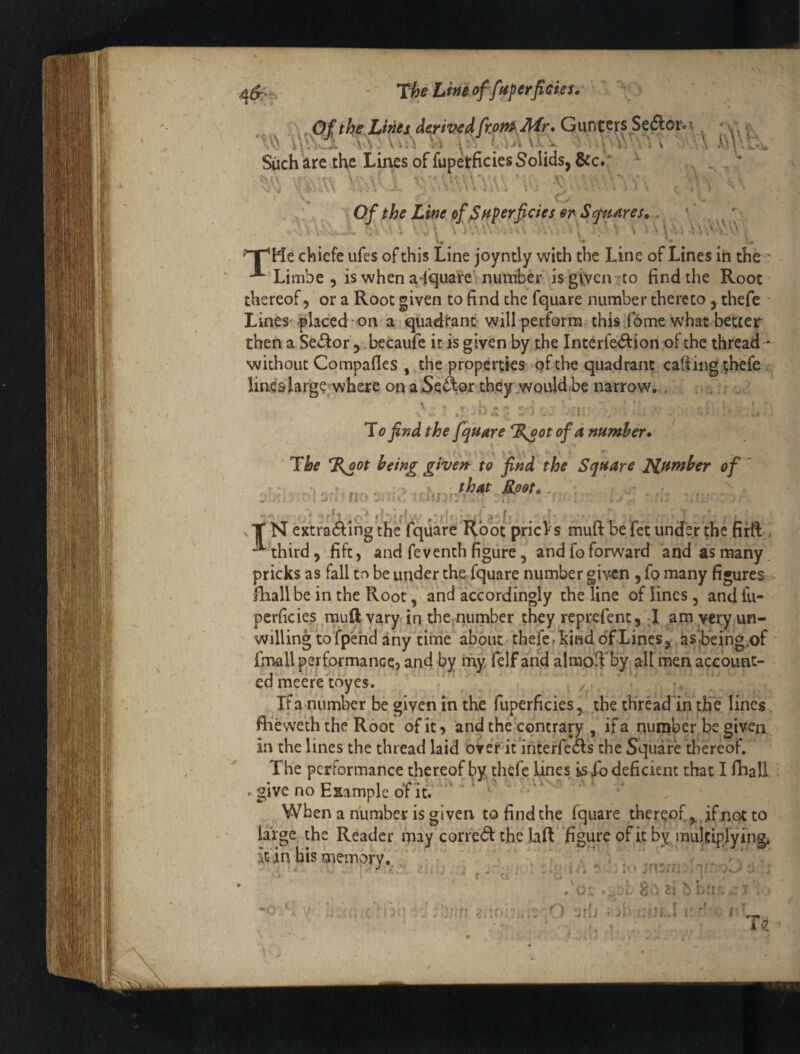 46 The Line of ſuperficies.
Of the Lines derived from Mr. Gunters Sector.
Such are the Lines of ſuperficies Solids, &c.
Of the Line of Superficies or Squares.
THe chiefe uſes of this Line joyntly with the Line of Lines in the
Limbe, is when a ſquare number is given to find the Root
thereof, or a Root given to find the ſquare number thereto, theſe
Lines placed on a quadrant will perform this ſome what better
then a Sector, becauſe it is given by the Interſection of the thread
without Compaſſes, the properties of the quadrant caſting theſe
lines large where on a Sector they would be narrow.
To find the ſquare Root of a number.
The Root being given to find the Square Number of
that Root.
IN extracting the ſquare Root pricks muſt be ſet under the firſt
third, fift, and ſeventh figure, and ſo forward and as many
pricks as fall to be under the ſquare number given, ſo many figures
ſhall be in the Root, and accordingly the line of lines, and ſu-
perficies muſt vary in the number they repreſent, I am very un-
willing to ſpend any time about theſe kind of Lines, as being of
ſmall performance, and by my ſelf and almoſt by all men account-
ed meere toyes.
If a number be given in the ſuperficies, the thread in the lines
ſheweth the Root of it, and the contrary, if a number be given
in the lines the thread laid over it interſects the Square thereof.
The performance thereof by theſe lines is ſo deficient that I ſhall
give no Example of it.
When a number is given to find the ſquare thereof, if not to
large the Reader may correct the laſt figure of it by multiplying
it in his memory.
To